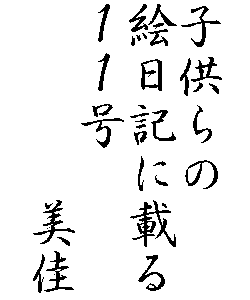 子供らの
絵日記に載る
11号
美佳